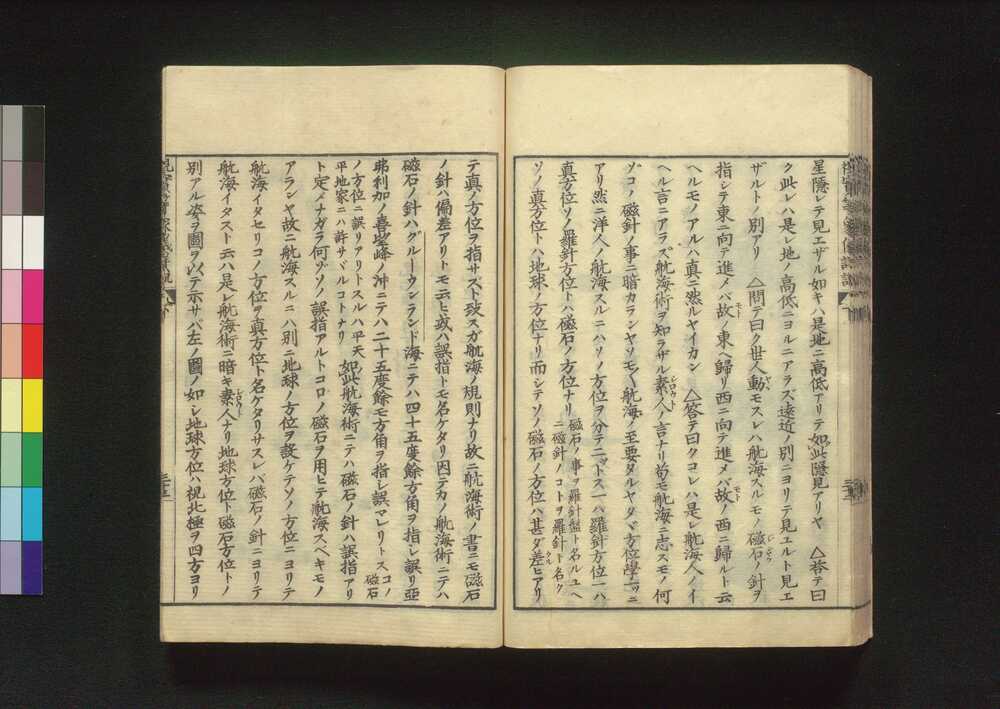 星隱レテ見エザル如キハ是地ニ高低アリテ如此隱見アリヤ △答テ曰
ク此レハ是レ地ノ高低ニヨルニアラズ遠近ノ別ニヨリテ見エルト見エ
ザルトノ別アリ △問テ曰ク世人動モスレハ航海スルモノ磁石ノ針ヲ
指シテ東ニ向テ進メバ故ノ東ヘ歸リ西ニ向テ進メバ故ノ西ニ歸ルト云
ヘルモノアルハ真ニ然ルヤイカン △答テ曰クコレハ是レ航海人ノイ
ヘル言ニアラズ航海術ヲ知ラザル素人ノ言ナリ苟モ航海ニ志スモノ何
ゾコノ磁針ノ事ニ暗カランヤソモ〱航海ノ至要タルヤタヾ方位學一ツニ
アリ然ニ洋人ノ航海スルニハソノ方位ヲ分テ二ツトス一ハ羅針方位一ハ
真方位ソノ羅針方位トハ磁石ノ方位ナリ
磁石ノ事ヲ羅針盤ト名ルユヘ
ニ磁針ノコトヲ羅針ト名ク
ソノ真方位トハ地球ノ方位ナリ而シテソノ磁石ノ方位ハ甚ダ差ヒアリ
テ真ノ方位ヲ指サズト致スガ航海ノ規則ナリ故ニ航海術ノ書ニモ磁石
ノ針ハ偏差アリトモ云ヒ或ハ誤指トモ名ケタリ因テカノ航海術ニテハ
磁石ノ針ハグルーウンランド海ニテハ四十五度餘方角ヲ指シ誤リ亞
弗利加ノ喜望峰ノ沖ニテハ二十五度餘モ方角ヲ指シ誤マレリトス
コノ磁石
ノ方位ニ誤リアリトスルハ平天
平地家ニハ許サヾルコトナリ
如此航海術ニテハ磁石ノ針ハ誤指アリ
ト定メナガラ何ゾソノ誤指アルトコロノ磁石ヲ用ヒテ航海スベキモノ
アランヤ故ニ航海スルニハ別ニ地球ノ方位ヲ設ケテソノ方位ニヨリテ
航海イタセリコノ方位ヲ真方位ト名ケタリサスレバ磁石ノ針ニヨリテ
航海イタスト云ハ是レ航海術ニ暗キ素人ナリ地球方位ト磁石方位トノ
別アル姿ヲ圖ヲ以テ示サバ左ノ圖ノ如シ地球方位ハ視北極ヲ四方ヨリ